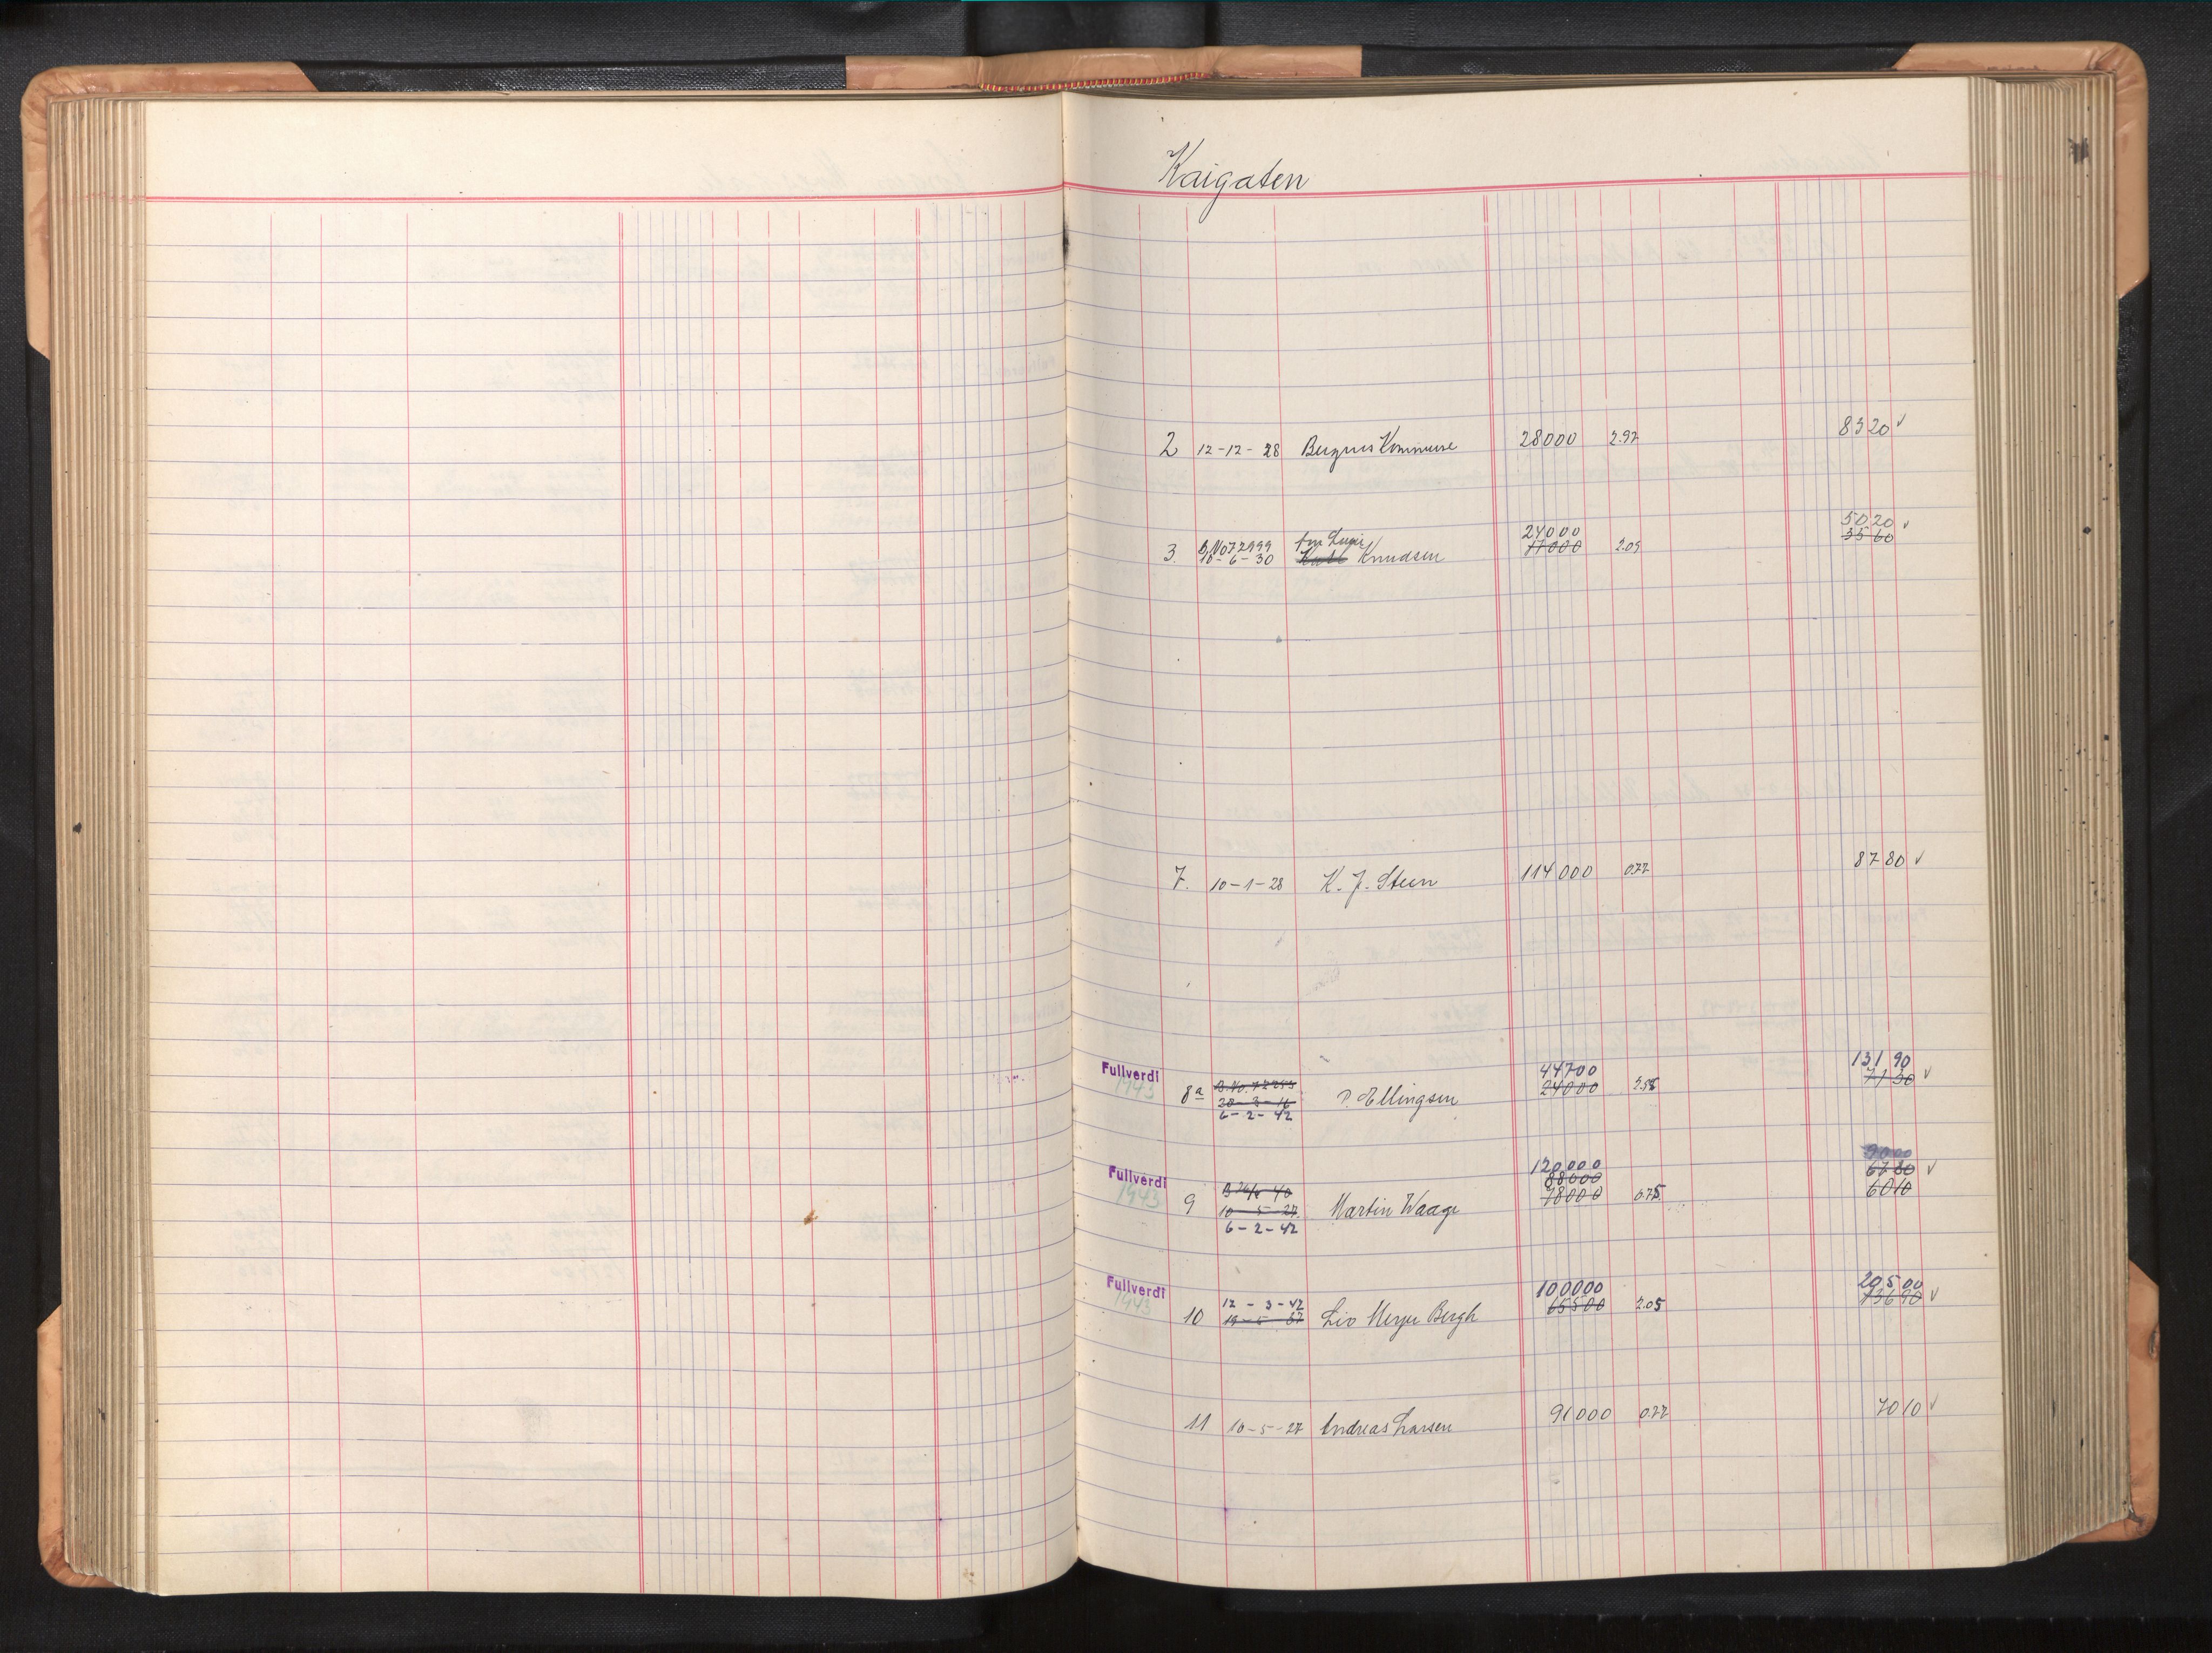 Kaigaten
2 12-12-28 Bergens Kommune 28000 2.97 83 20 ✓
fru Luise 24000 50 20 ✓
3. B.No 72999 Knudsen 17000 2.09 35 60
10-6-30
7. 10-1-28 K. J. Steen 114000 0.77 87 80 ✓
Fullverdi 44700 131 90
1943 8a 24000 71 30 ✓
28-3-16 P. Ellingsen
6-2-42
Fullverdi 120000 90 00
1943 88000 67 80 ✓
9 78000 0.75 60 10
10-5-27 Martin Waage
6-2-42
Fullverdi 100000 205 00
1943 12-3-42 65500 2.05 ✓
10 Liv Meyer Bergh
11 10-5-27 Andreas Larsen 91000 0.77 70 10 ✓